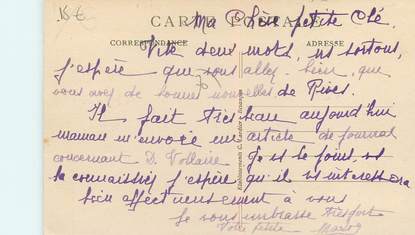 15 €
CARTE POSTALE
Ma Chère petite Clé.
CORRESPONDANCE
ADRESSE
Vite deux mots, ns sortons,
j'espère que vous allez bien, que
vous avez de bonnes nouvelles de Rives.
Il fait très beau aujourd'hui
maman m'envoie un article de journal
concernant D. Vollaire Je le joins, vs
le connaissiez j'espère qu'il vs intéressera
bien affectueusement à vous
Je vous embrasse très fort
Votre petite